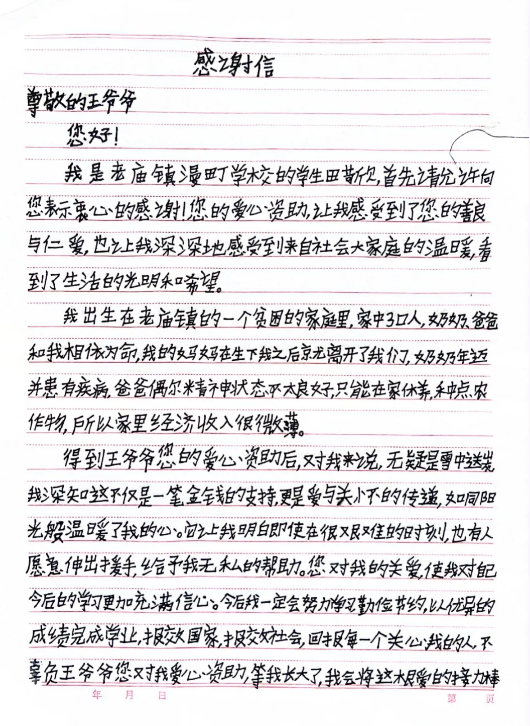 感谢信
尊敬的王爷爷
您好!
我是老庙镇漫町学校的学生田蕲欣,首先请允许向
您表示衷心的感谢!您的爱心资助,让我感受到了您的善良
与仁爱,也让我深深地感受到来自社会大家庭的温暖,看
到了生活的光明和希望。
我出生在老庙镇的一个贫困的家庭里,家中3口人,奶奶、爸爸
和我相依为命,我的妈妈在生下我之后就离开了我们,奶奶年迈
并患有疾病,爸爸偶尔精神状态不太良好,只能在家休养,种点农
作物,所以家里经济收入很微薄。
得到王爷爷您的爱心资助后,对我来说,无疑是雪中送炭
我深知这不仅是一笔金钱的支持,更是爱与关怀的传递,如同阳
光般温暖了我的心。它让我明白即使在很艰难的时刻,也有人
愿意伸出援手,给予我无私的帮助。您对我的关爱,使我对自己
今后的学习更加充满信心。今后我一定会努力学习勤俭节约,以优异的
成绩完成学业,报效国家,报效社会,回报每一个关心我的人,不
辜负王爷爷您对我爱心资助,等我长大了,我会将这根爱的接力棒
年 月 日
第 页